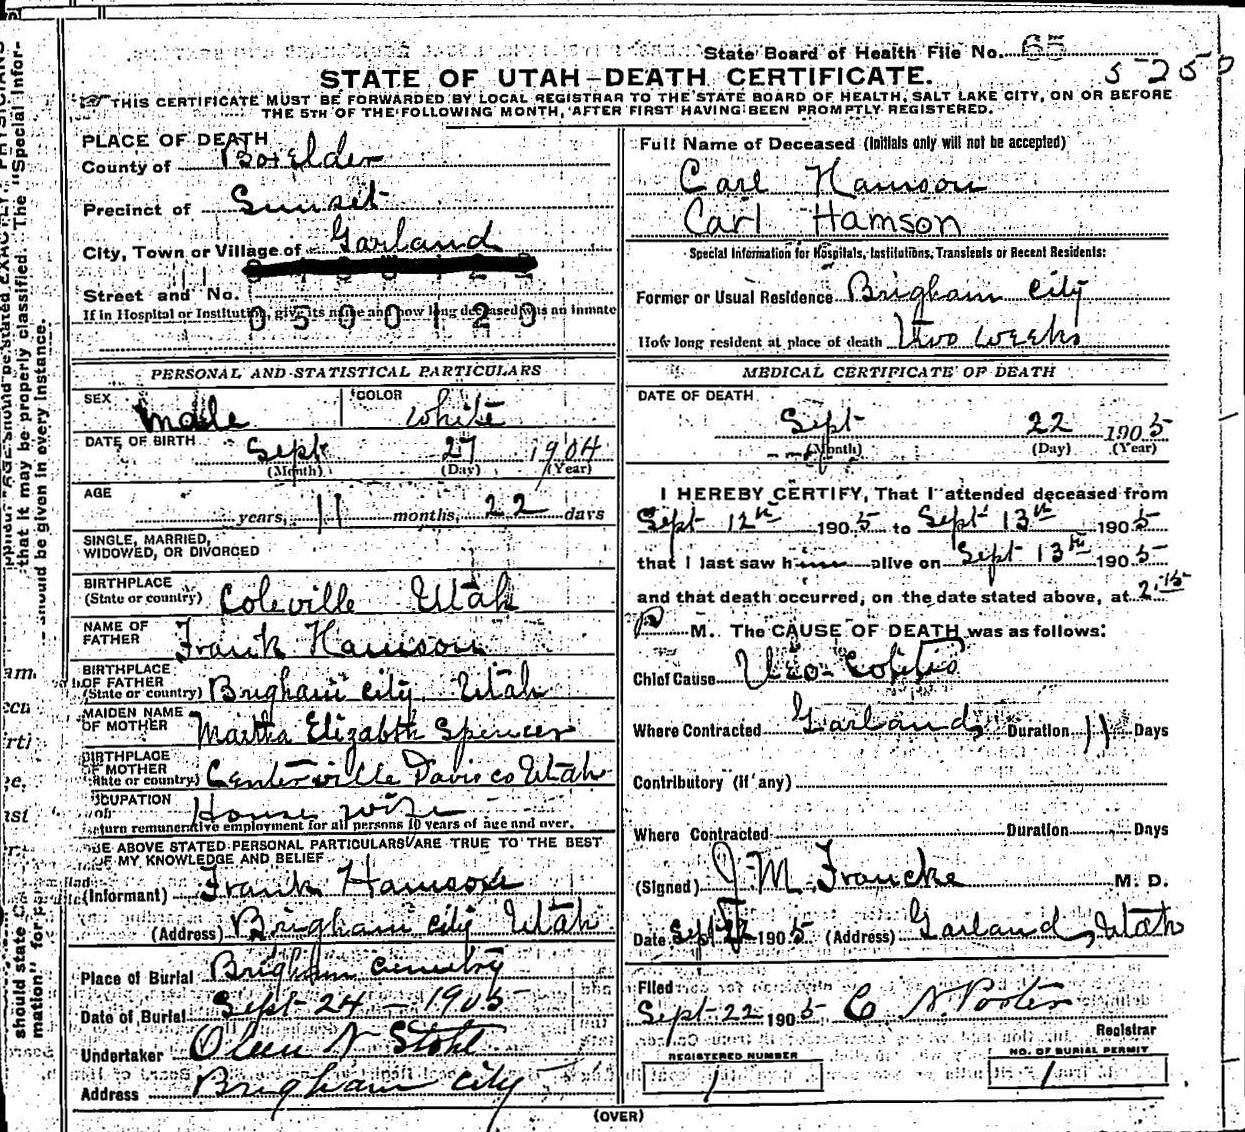 State Board of Health File No. 65
5250
STATE OF UTAH—DEATH CERTIFICATE.
THIS CERTIFICATE MUST BE FORWARDED BY LOCAL REGISTRAR TO THE STATE BOARD OF HEALTH, SALT LAKE CITY, ON OR BEFORE
THE 5TH OF THE FOLLOWING MONTH, AFTER FIRST HAVING BEEN PROMPTLY REGISTERED.
PLACE OF DEATH
County of Boxelder
Precinct of Sunset
City, Town or Village of Garland
Street and No.
If in Hospital or Institution, give its name and how long deceased was an inmate
0500129
Full Name of Deceased (Initials only will not be accepted)
Carl Hamson
Carl Hamson
Special Information for Hospitals, Institutions, Transients or Recent Residents:
Former or Usual Residence Brigham City
How long resident at place of death Two weeks
PERSONAL AND STATISTICAL PARTICULARS
SEX Male COLOR White
DATE OF BIRTH Sept 27 1904
(Month) (Day) (Year)
AGE years, 11 months, 22 days
SINGLE, MARRIED,
WIDOWED, OR DIVORCED
BIRTHPLACE
(State or country) Coleville Utah
NAME OF
FATHER Frank Hamson
BIRTHPLACE
OF FATHER
(State or country) Brigham City Utah
MAIDEN NAME
OF MOTHER Martha Elizabth Spencer
BIRTHPLACE
OF MOTHER
(State or country) Centerville Davis co Utah
OCCUPATION House wife
return remunerative employment for all persons 10 years of age and over.
THE ABOVE STATED PERSONAL PARTICULARS ARE TRUE TO THE BEST
OF MY KNOWLEDGE AND BELIEF
(Informant) Frank Hamson
(Address) Brigham City Utah
Place of Burial Brigham Cemetry
Date of Burial Sept 24 - 1905
Undertaker Oleen N Stohl
Address Brigham City
MEDICAL CERTIFICATE OF DEATH
DATE OF DEATH
Sept 22 1905
(Month) (Day) (Year)
I HEREBY CERTIFY, That I attended deceased from
Sept 12th 1905 to Sept 13th 1905
that I last saw him alive on Sept 13th 1905
and that death occurred, on the date stated above, at 2.15
P M. The CAUSE OF DEATH was as follows:
Chief Cause Ileo-Colitis
Where Contracted Garland Duration 11 Days
Contributory (if any)
Where Contracted Duration Days
(Signed) J. M. Francke M. D.
Date Sept 22 1905 (Address) Garland, Utah
Filed
Sept 22 1905 C N. Porter
Registrar
REGISTERED NUMBER
1
NO. OF BURIAL PERMIT
1
(OVER)
that it may be properly classified. The "Special Infor-
should be given in every instance.
should state
mation" for